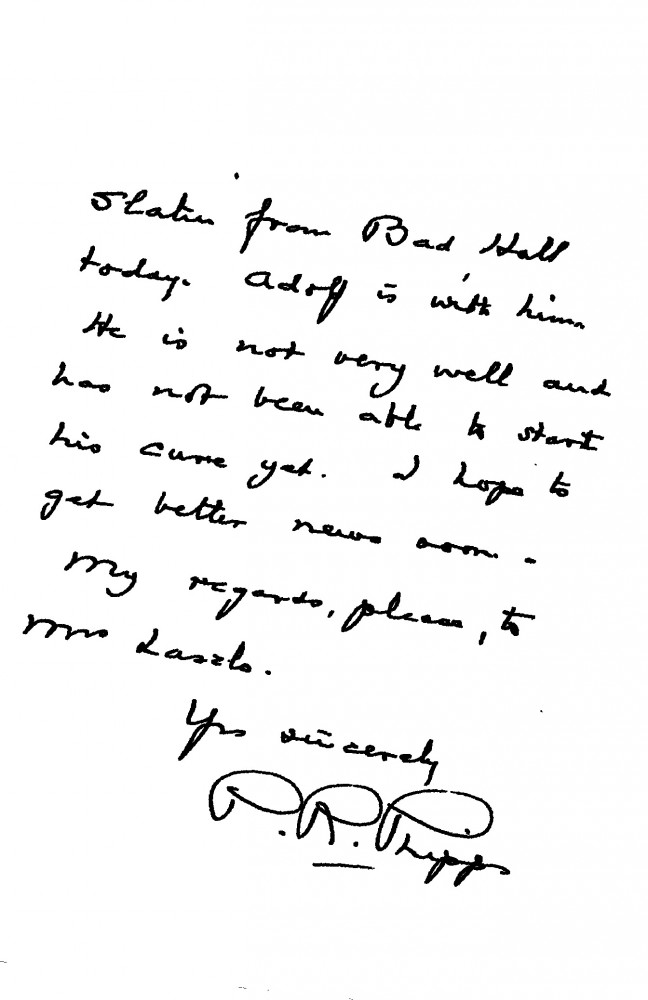 Slatin from Bad Hall
today. Adolf is with him.
He is not very well and
has not been able to start
his cure yet. I hope to
get better news soon -
My regards, please, to
Mrs Laszlo.
Yrs sincerely
P. R. Phipps